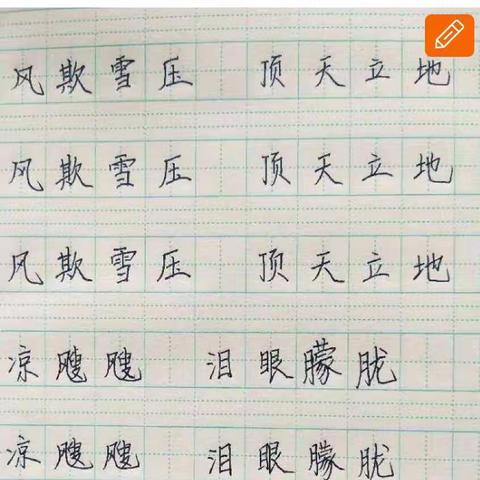 风欺雪压 顶天立地
风欺雪压 顶天立地
风欺雪压 顶天立地
凉飕飕 泪眼朦胧
凉飕飕 泪眼朦胧